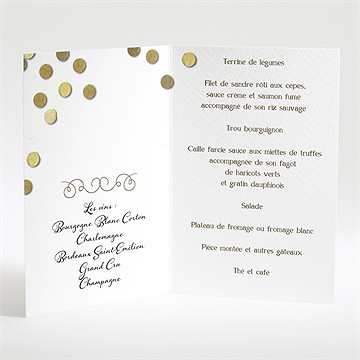 Les vins :
Bourgogne Blanc Corton
Charlemagne
Bordeaux Saint-Emilion
Grand Cru
Champagne
Terrine de légumes
Filet de sandre rôti aux cèpes,
sauce crème et saumon fumé
accompagné de son riz sauvage
Trou bourguignon
Caille farcie sauce aux miettes de truffes
accompagnée de son fagot
de haricots verts
et gratin dauphinois
Salade
Plateau de fromage ou fromage blanc
Pièce montée et autres gâteaux
Thé et café